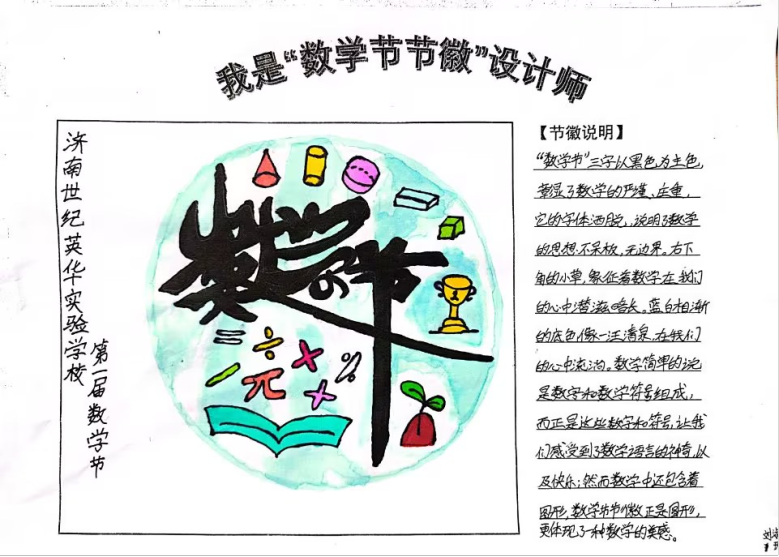 我是“数学节节徽”设计师
济南世纪英华实验学校
第一届数学节
数学节
【节徽说明】
“数学节”三字以黑色为主色,
彰显了数学的严谨、庄重,
它的字体洒脱,说明了数学
的思想不呆板,无边界。右下
角的小草,象征着数学在我们
的心中潜滋暗长。蓝白相渐
的底色像一汪清泉,在我们
的心中流淌。数学简单的说
是数字和数学符号组成,
而正是这些数字和符号,让我
们感受到了数学语言的神奇,以
及快乐;然而数学中还包含着
图形,数学节节徽正是圆形,
更体现了一种数学的美感。
= ÷ × %
- π ×